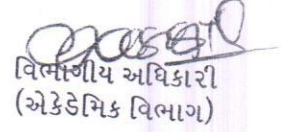 વિભાગીય અધિકારી
(એકેડેમિક વિભાગ)